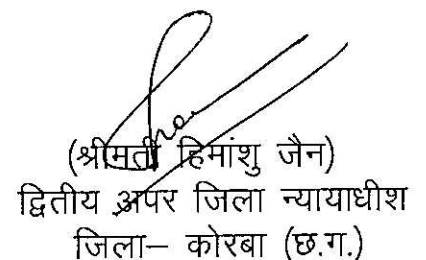 (श्रीमती हिमांशु जैन)
द्वितीय अपर जिला न्यायाधीश
जिला– कोरबा (छ.ग.)